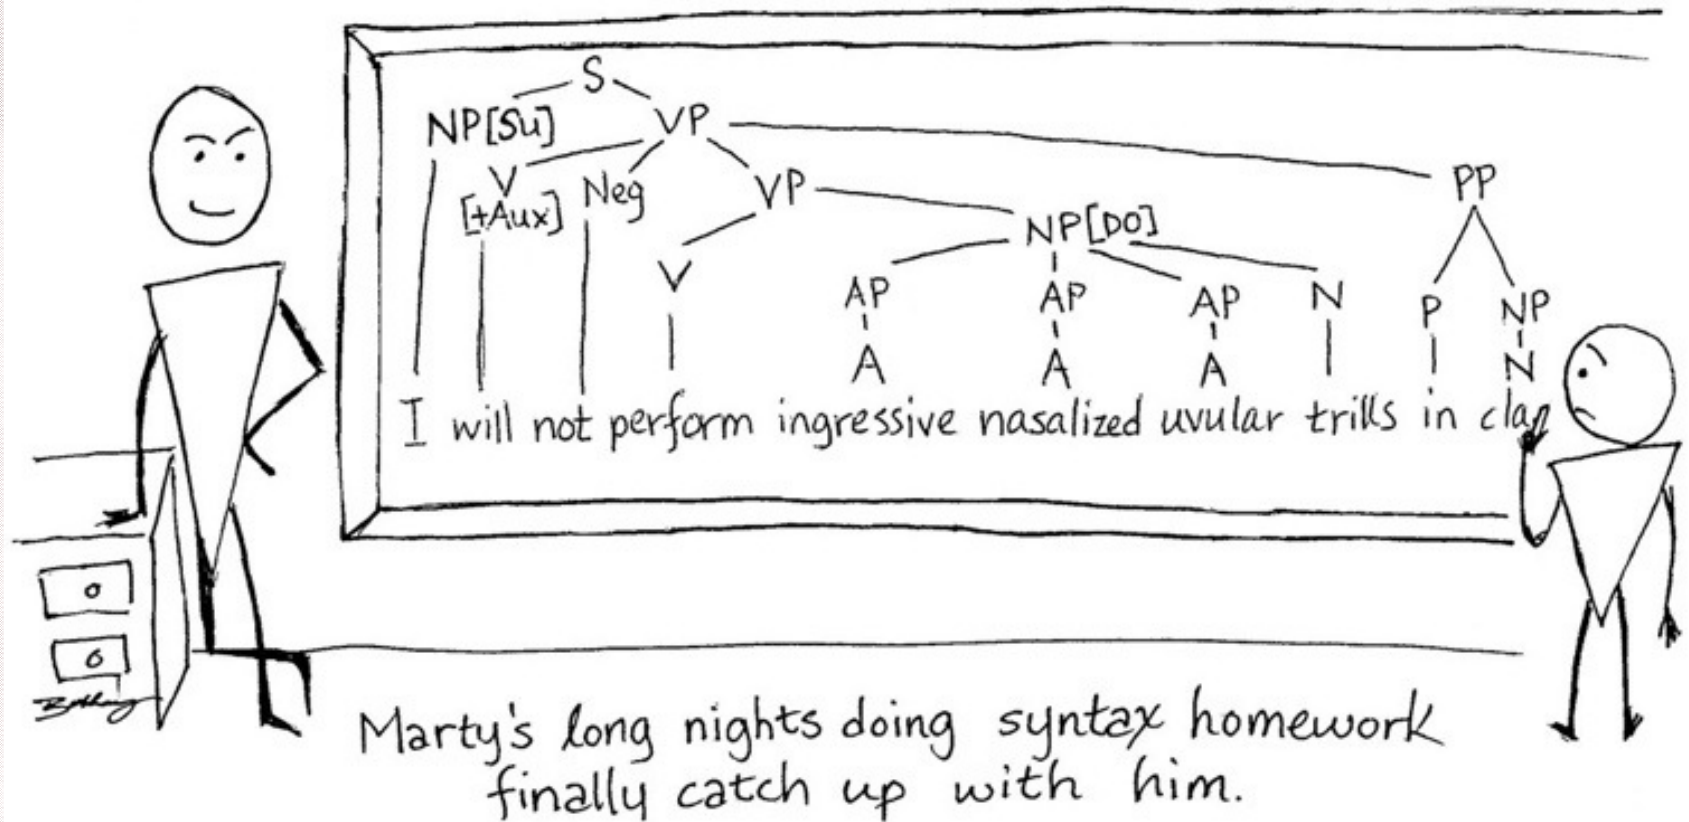 S
NP[Su] VP
V Neg VP PP
[+Aux] NP[DO]
V AP AP AP N P NP
A A A N
I will not perform ingressive nasalized uvular trills in clap
Marty's long nights doing syntax homework
finally catch up with him.